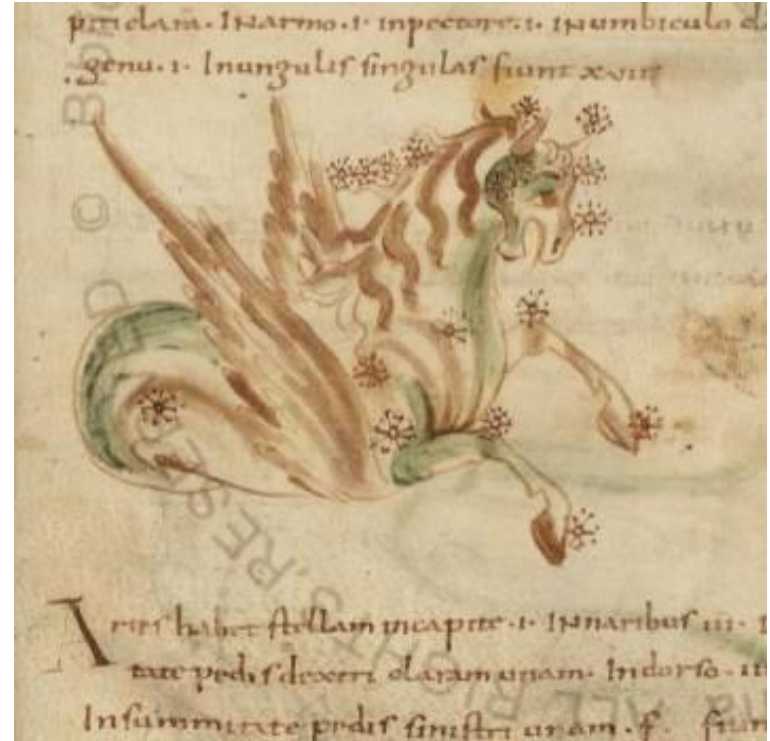 In armo · i · in pectore · i · In umbiculo
genu · i · In ungulis singulas fiunt xviii
Aries habet stellam in capite · i · In naribus iii ·
tate pedis dextri claram unam · In dorso · iii
In summitate pedis sinistri unam · f · fiun
ALL RIGHTS RESE